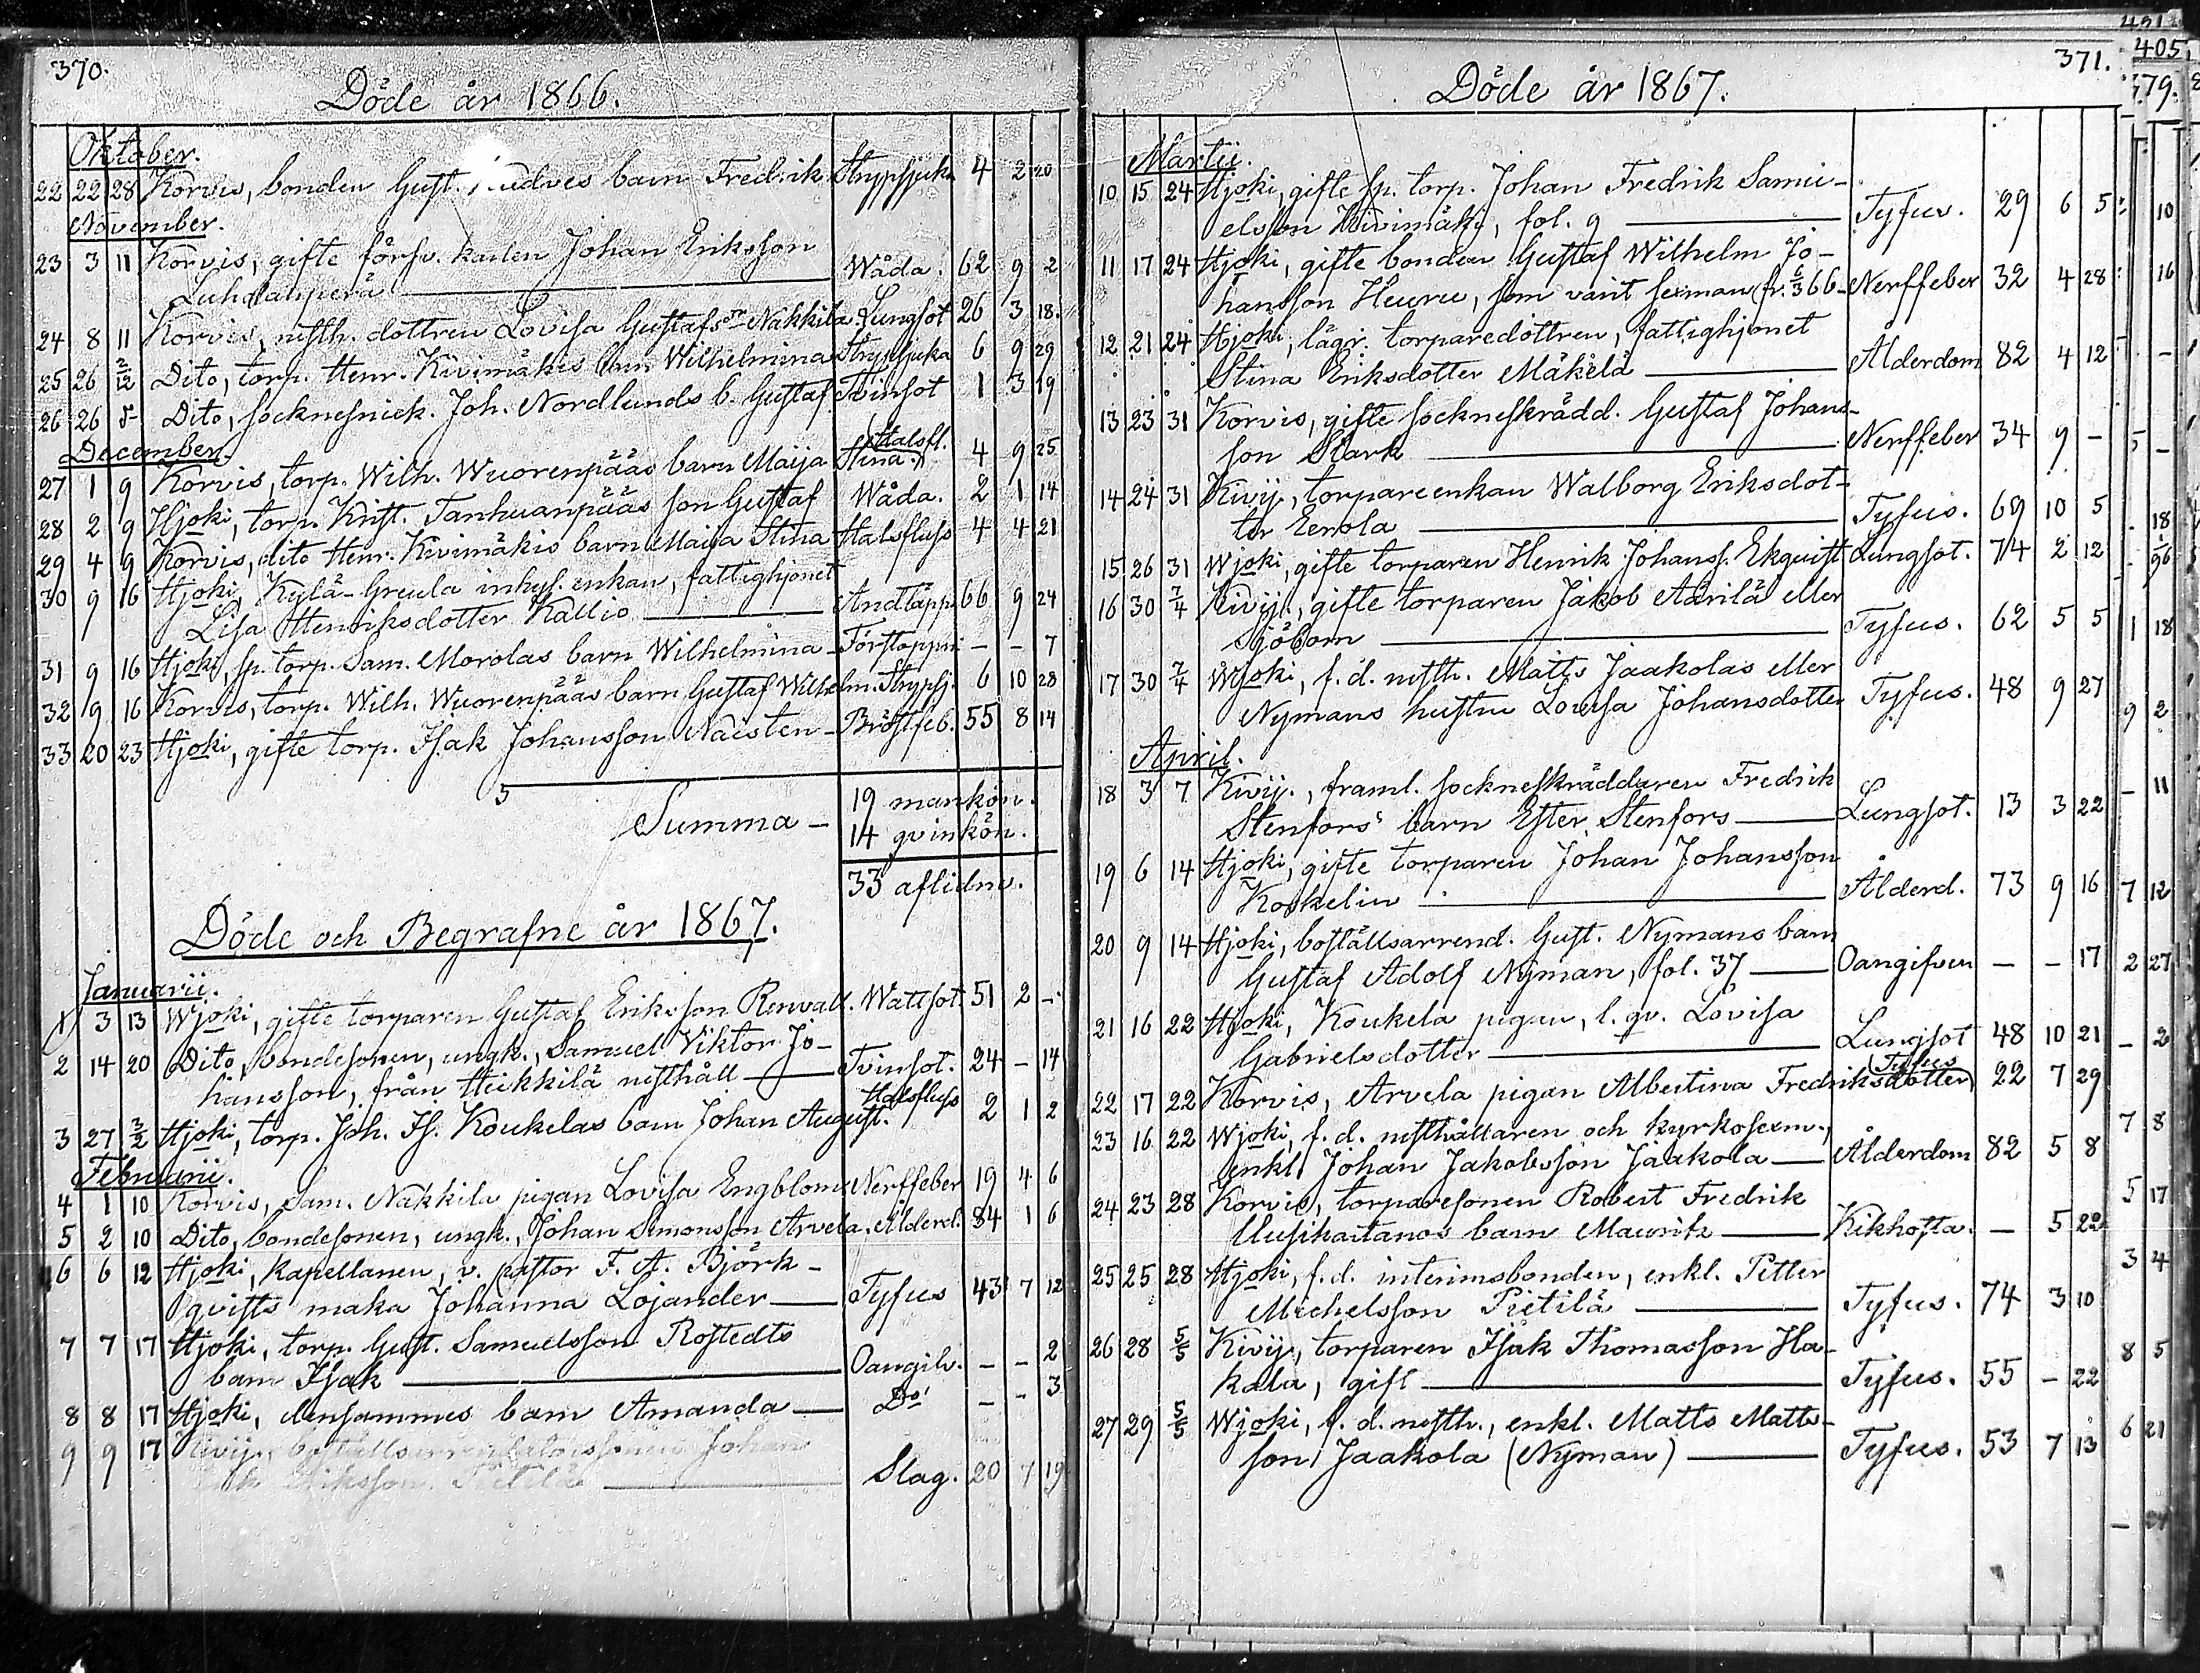 370.
Döde år 1866.
Oktober.
22 22 28 Korvis, bonden Gust. barn Fredrik Strypsjuka 4 2 20
November.
23 3 11 Korvis, gifte förfv. karlen Johan Eriksson
Luhdanperä Wåda. 62 9 2
24 8 11 Korvis, nysth. dottren Lovisa Gustafsdr Nakkila Lungsot 26 3 18.
25 26 2/12 Dito, torp. Henr. Kivimäkis barn Wilhelmina Strypsjuka 6 9 29
26 26 5 Dito, socknesnick. Joh. Nordlunds b. Gustaf Tvinsot 1 3 19
December.
27 1 9 Korvis, torp. Wilh. Wuorenpääs barn Maija Stina. Halsfl. 4 9 25
28 2 9 Hjoki, torp. Krist. Tanhuanpääs son Gustaf Wåda. 2 1 14
29 4 9 Korvis, dito Henr. Kivimäkis barn Maija Stina Halsfluss 4 4 21
30 9 16 Hjoki, Kylä-Greula inhys. enkan, fattighjonet
Lisa Henriksdotter Kallio Andtäppa 66 9 24
31 9 16 Hjoki, sp. torp. Sam. Morolas barn Wilhelmina Förstoppn. - - 7
32 9 16 Korvis, torp. Wilh. Wuorenpääs barn Gustaf Wilhelm. Strypsj. 6 10 28
33 20 23 Hjoki, gifte torp. Isak Johansson Naesten Bröstfeb. 55 8 14
Summa - 19 mankön.
14 qvinkön.
33 aflidne.
Döde och Begrafne år 1867.
Januarii.
1 3 13 Wjoki, gifte torparen Gustaf Eriksson Renvall. Wattsot. 51 2 -
2 14 20 Dito, bondesonen, ungk., Samuel Viktor Jo-
hansson, från Heikkilä nysthåll Tvinsot. 24 - 14
3 27 3/2 Hjoki, torp. Joh. Is. Koukelas barn Johan August. Halsfluss 2 1 2
Februarii.
4 1 10 Korvis, Sam. Nakkila pigan Lovisa Engblom Nerffeber 19 4 6
5 2 10 Dito, bondesonen, ungk., Johan Simonsson Arvela. Ålderd. 84 1 6
6 6 12 Hjoki, kapellanen, v. pastor F. A. Björk-
qvists maka Johanna Lojander Tyfus 43 7 12
7 7 17 Hjoki, torp. Gust. Samuelsson Rostedts
barn Isak Oangifv. - - 2
8 8 17 Hjoki, densammes barn Amanda Do - - 3
9 9 17 Kivij., Johan
Eriksson Pietilä Slag. 20 7 19
371.
Döde år 1867.
Martii.
10 15 24 Hjoki, gifte sp. torp. Johan Fredrik Samu-
elsson Kivimäki, fol. 9 Tyfus. 29 6 5
11 17 24 Hjoki, gifte bonden Gustaf Wilhelm Jo-
hansson Heuru, som varit sexman fr. 6/3 66 Nerffeber 32 4 28
12 21 24 Hjoki, lägr. torparedottren, fattighjonet
Stina Eriksdotter Mäkelä Ålderdom 82 4 12
13 23 31 Korvis, gifte sockneskrädd. Gustaf Johans-
son Stark Nerffeber 34 9 -
14 24 31 Kivij., torpareenkan Walborg Eriksdot-
ter Eerola Tyfus. 69 10 5
15 26 31 Wjoki, gifte torparen Henrik Johanss. Ekquist Lungsot. 74 2 12
16 30 7/4 Kivij., gifte torparen Jakob Aärilä eller
Sjöbom Tyfus. 62 5 5
17 30 7/4 Wjoki, f. d. nysth. Matts Jaakolas eller
Nymans hustru Lovisa Johansdotter Tyfus. 48 9 27
April.
18 3 7 Kivij., framl. sockneskräddaren Fredrik
Stenfors' barn Ester Stenfors Lungsot. 13 3 22
19 6 14 Hjoki, gifte torparen Johan Johansson
Koskelin Ålderd. 73 9 16
20 9 14 Hjoki, boställsarrend. Gust. Nymans barn
Gustaf Adolf Nyman, fol. 37 Oangifven - - 17
21 16 22 Hjoki, Koukela pigan, l. qv. Lovisa
Gabrielsdotter Lungsot 48 10 21
22 17 22 Korvis, Arvela pigan Albertina Fredriksdotter Tyfus 22 7 29
23 16 22 Wjoki, f. d. nysthållaren och kyrkosexm.,
enkl. Johan Jakobsson Jaakola Ålderdom 82 5 8
24 23 28 Korvis, torparesonen Robert Fredrik
Uusikartanos barn Mauritz Kikhosta. - 5 22
25 25 28 Hjoki, f. d. interimsbonden, enkl. Petter
Michelsson Pietilä Tyfus. 74 3 10
26 28 5/5 Kivij., torparen Isak Thomasson Ha-
kala, gift Tyfus. 55 - 22
27 29 5/5 Wjoki, f. d. nysth., enkl. Matts Matts-
son Jaakola (Nyman) Tyfus. 53 7 13
405.
79.